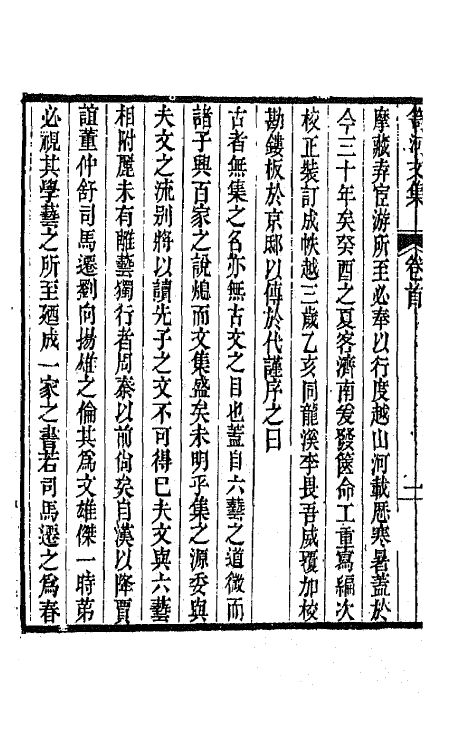 笥河文集 卷首 一
摩藏弆宦游所至必奉以行度越山河載厯寒暑蓋於
今三十年矣癸酉之夏客濟南爰發篋命工重寫編次
校正裝訂成帙越三歲乙亥同龍溪李畏吾威覆加校
勘鏤板於京邸以傳於代謹序之曰
古者無集之名亦無古文之目也蓋自六藝之道微而
諸子興百家之說熄而文集盛矣未明乎集之源委與
夫文之流别將以讀先子之文不可得巳夫文與六藝
相附麗未有離藝獨行者周秦以前尙矣自漢以降賈
誼董仲舒司馬遷劉向揚雄之倫其爲文雄傑一時苐
必視其學藝之所至廼成一家之書若司馬遷之爲春